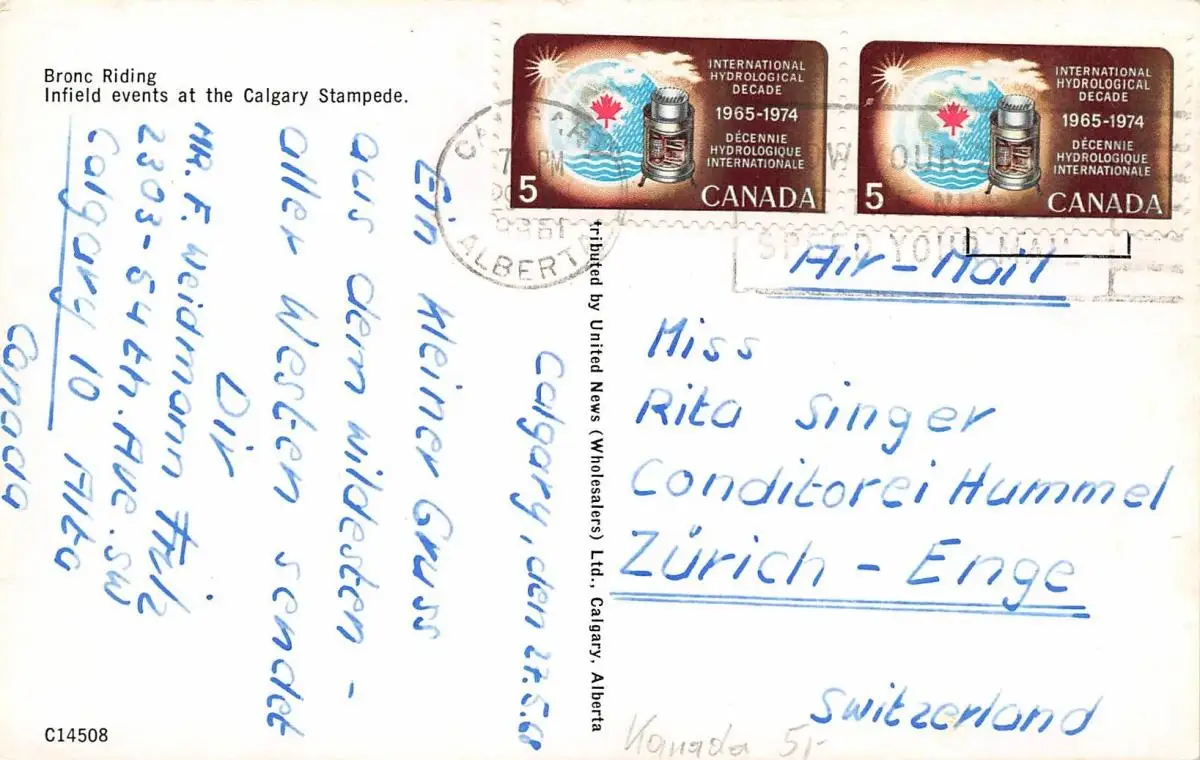 Bronc Riding
Infield events at the Calgary Stampede.
INTERNATIONAL
HYDROLOGICAL
DECADE
1965-1974
DÉCENNIE
HYDROLOGIQUE
INTERNATIONALE
5
CANADA
INTERNATIONAL
HYDROLOGICAL
DECADE
1965-1974
DÉCENNIE
HYDROLOGIQUE
INTERNATIONALE
5
CANADA
CALGARY
PM
ALBERTA
SPEED YOUR MAIL
Air-Mail
Miss
Rita Singer
Conditorei Hummel
Zürich - Enge
Switzerland
tributed by United News (Wholesalers) Ltd., Calgary, Alberta
Calgary, den 27.5.68
Ein kleiner Gruss
aus dem wildesten -
aller Westen sendet
Dir
MR. F. Weidmann
2303-54th. Ave. SW
Calgary 10 Alta
Canada
C14508
Kanada 5,-